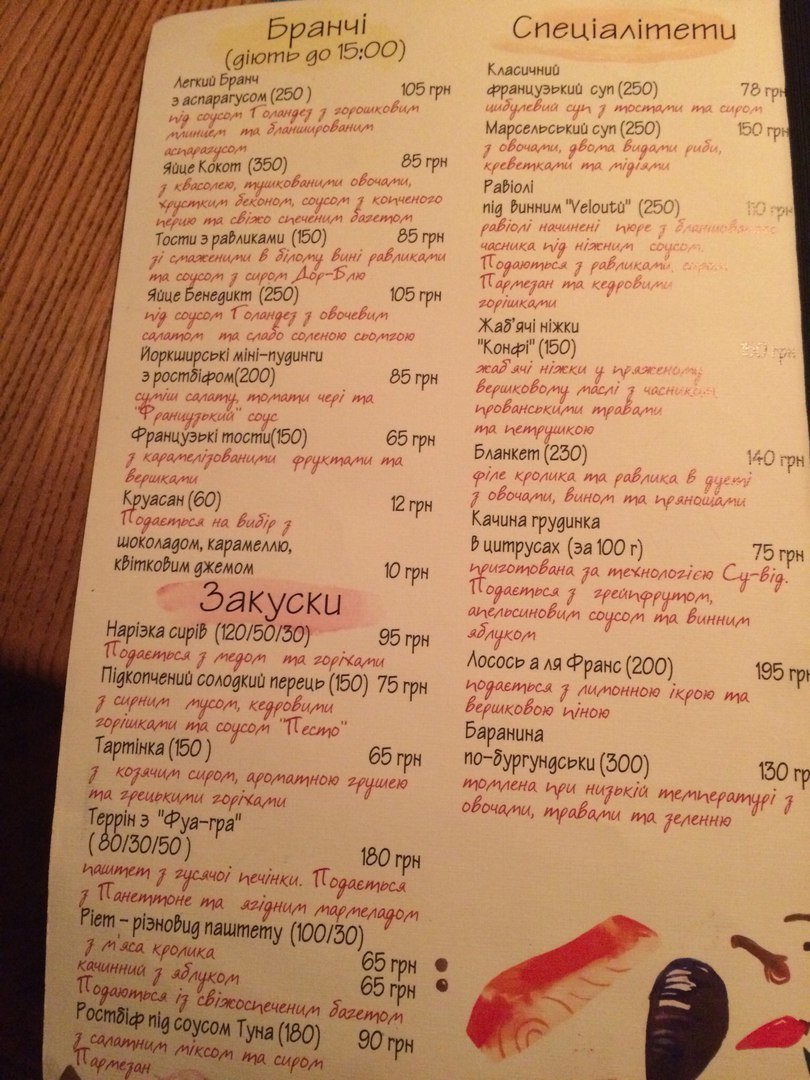 Бранчі
(діють до 15:00)
Легкий Бранч
з аспарагусом (250 ) 105 грн
під соусом Голандез з горошковим
млинцем та бланшированим
аспарагусом
Яйце Кокот (350) 85 грн
з квасолею, тушкованими овочами,
хрустким беконом, соусом з копченого
перцю та свіжо спеченим багетом
Тости з равликами (150) 85 грн
зі смаженими в білому вині равликами
та соусом з сиром Дор-Блю
Яйце Бенедикт (250) 105 грн
під соусом Голандез з овочевим
салатом та слабо соленою сьомгою
Йоркширські міні-пудинги
з ростбіфом(200) 85 грн
суміш салату, томати чері та
"Французький" соус
Французькі тости(150) 65 грн
з карамелізованими фруктами та
вершками
Круасан (60) 12 грн
Подається на вибір з
шоколадом, карамеллю,
квітковим джемом 10 грн
Закуски
Нарізка сирів (120/50/30) 95 грн
Подається з медом та горіхами
Підкопчений солодкий перець (150) 75 грн
з сирним мусом, кедровими
горішками та соусом "Песто"
Тартінка (150 ) 65 грн
з козячим сиром, ароматною грушею
та грецькими горіхами
Террін з "Фуа-гра"
( 80/30/50 ) 180 грн
паштет з гусячої печінки. Подається
з Панеттоне та ягідним мармеладом
Рієт - різновид паштету (100/30)
з м'яса кролика 65 грн
качинний з яблуком 65 грн
Подаються із свіжоспеченим багетом
Ростбіф під соусом Туна (180) 90 грн
з салатним міксом та сиром
Пармезан
Спеціалітети
Класичний
французький суп (250) 78 грн
цибулевий суп з тостами та сиром
Марсельський суп (250) 150 грн
з овочами, двома видами риби,
креветками та мідіями
Равіолі
під винним "Veloutù" (250) грн
равіолі начинені пюре з
часника під ніжним соусом.
Подаються з равликами,
Пармезан та кедровими
горішками
Жаб'ячі ніжки
"Конфі" (150) грн
жаб'ячі ніжки у пряженому
вершковому маслі з часником,
прованськими травами
та петрушкою
Бланкет (230) 140 грн
філе кролика та равлика в дуеті
з овочами, вином та прянощами
Качина грудинка
в цитрусах (за 100 г) 75 грн
приготована за технологією Су-від.
Подається з грейпфрутом,
апельсиновим соусом та винним
яблуком
Лосось а ля Франс (200) 195 грн
подається з лимонною ікрою та
вершковою піною
Баранина
по-бургундськи (300) 130 гр
томлена при низькій температурі з
овочами, травами та зеленню